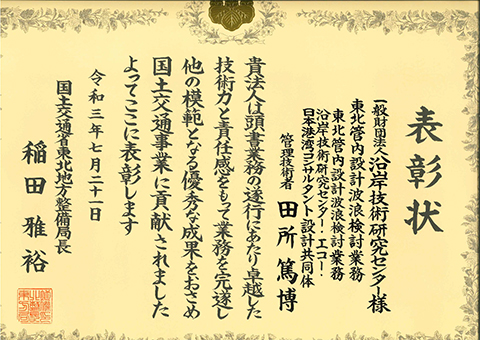 表彰状
一般財団法人沿岸技術研究センター様
東北管内設計波浪検討業務
東北管内設計波浪検討業務
沿岸技術研究センター・エコー・
日本港湾コンサルタント設計共同体
管理技術者 田所篤博
貴法人は頭書業務の遂行にあたり卓越した
技術力と責任感をもって業務を完遂し
他の模範となる優秀な成果をおさめ
国土交通事業に貢献されました
よってここに表彰します
令和三年七月二十一日
国土交通省東北地方整備局長
稲田雅裕